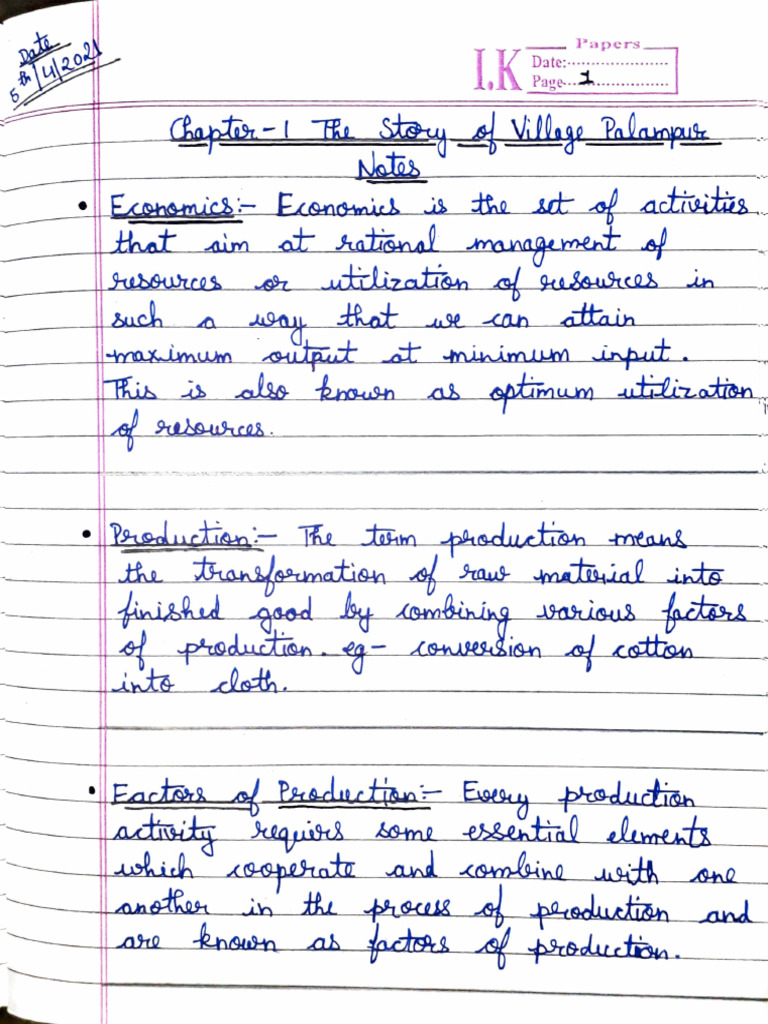 Date
5th/4/2021
I.K Papers
Date:
Page 1
Chapter-1 The Story of Village Palampur
Notes
• Economics:- Economics is the set of activities
that aim at rational management of
resources or utilization of resources in
such a way that we can attain
maximum output at minimum input.
This is also known as optimum utilization
of resources.
• Production:- The term production means
the transformation of raw material into
finished good by combining various factors
of production. eg- conversion of cotton
into cloth.
• Factors of Production:- Every production
activity requiers some essential elements
which cooperate and combine with one
another in the process of production and
are known as factors of production.